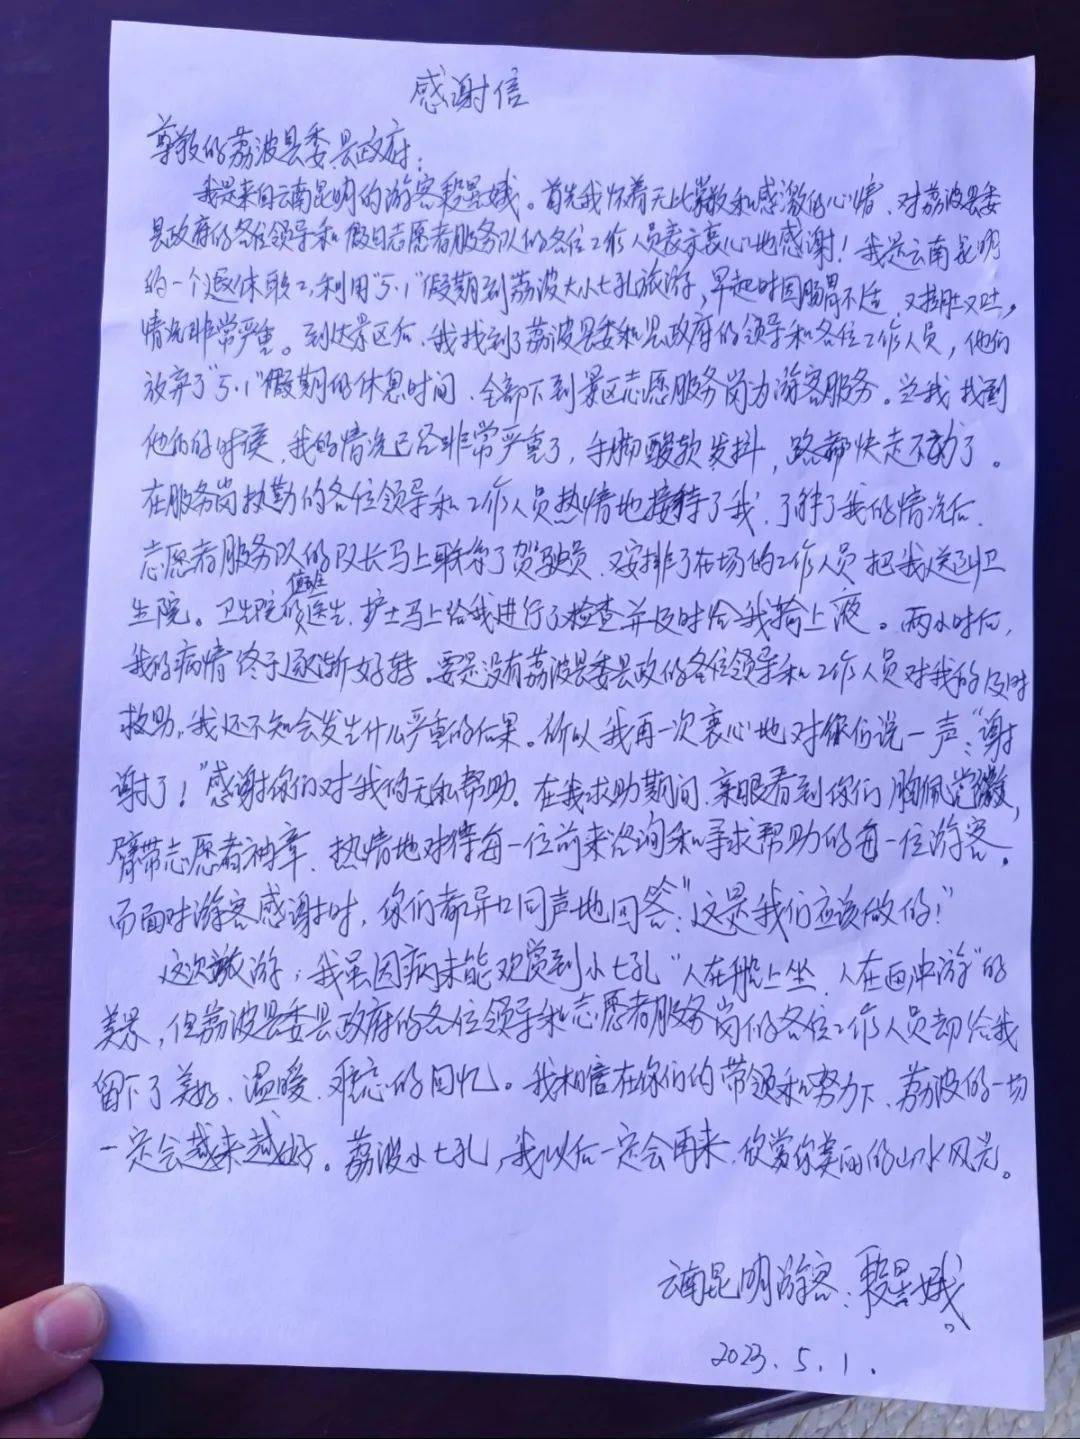 感谢信
尊敬的荔波县委、县政府：
我是来自云南昆明的游客。首先我怀着无比崇敬和感激的心情、对荔波县委
县政府的各位领导和假日志愿者服务队的各位工作人员表示衷心地感谢！我是云南昆明
的一个退休职工，利用“5.1”假期到荔波大小七孔旅游，早起时因肠胃不适、又拉肚又吐，
情况非常严重。到达景区后、我找到了荔波县委和县政府的领导和各位工作人员，他们
放弃了“5.1”假期的休息时间、全部下到景区志愿服务岗为游客服务。当我找到
他们的时候、我的情况已经非常严重了，手脚酸软发抖，路都快走不动了。
在服务岗执勤的各位领导和工作人员热情地接待了我、了解了我的情况后、
志愿者服务队的队长马上联系了驾驶员、安排了在场的工作人员把我送到卫
生院。卫生院的值班医生、护士马上给我进行了检查并及时给我输上液。两小时后，
我的病情终于逐渐好转。要是没有荔波县委县政的各位领导和工作人员对我的及时
救助，我还不知会发生什么严重的后果。所以我再一次衷心地对你们说一声：“谢
谢了！”感谢你们对我的无私帮助。在我求助期间、亲眼看到你们胸佩党徽，
臂带志愿者袖章、热情地对待每一位前来咨询和寻求帮助的每一位游客。
而面对游客感谢时，你们都异口同声地回答：“这是我们应该做的！”
这次旅游，我虽因病未能欢赏到小七孔“人在船上坐、人在画中游”的
美景，但荔波县委县政府的各位领导和志愿者服务岗的各位工作人员却给我
留下了美好、温暖、难忘的回忆。我相信在你们的带领和努力下、荔波的一切
一定会越来越好。荔波小七孔，我以后一定会再来、欣赏你美丽的山水风光。
云南昆明游客：
2023.5.1.